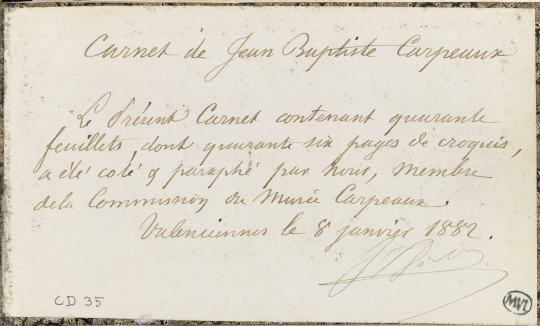 Carnet de Jean Baptiste Carpeaux
Le Présent Carnet contenant quarante
feuillets, dont quarante six pages de croquis,
a été coté & paraphé par nous, membre
de la Commission du Musée Carpeaux.
Valenciennes le 8 janvier 1882.
CD 35